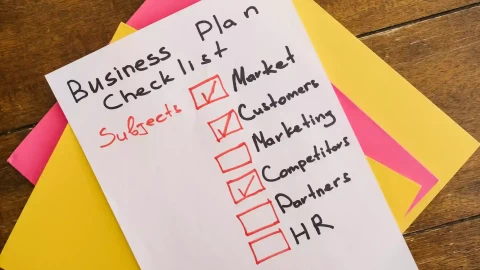 Business Plan
Checklist
Subjects
Market
Customers
Marketing
Competitors
Partners
HR